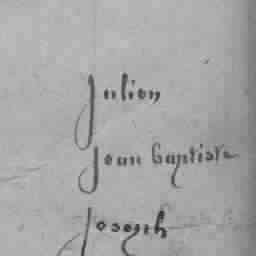 Julien
Jean baptiste
Joseph